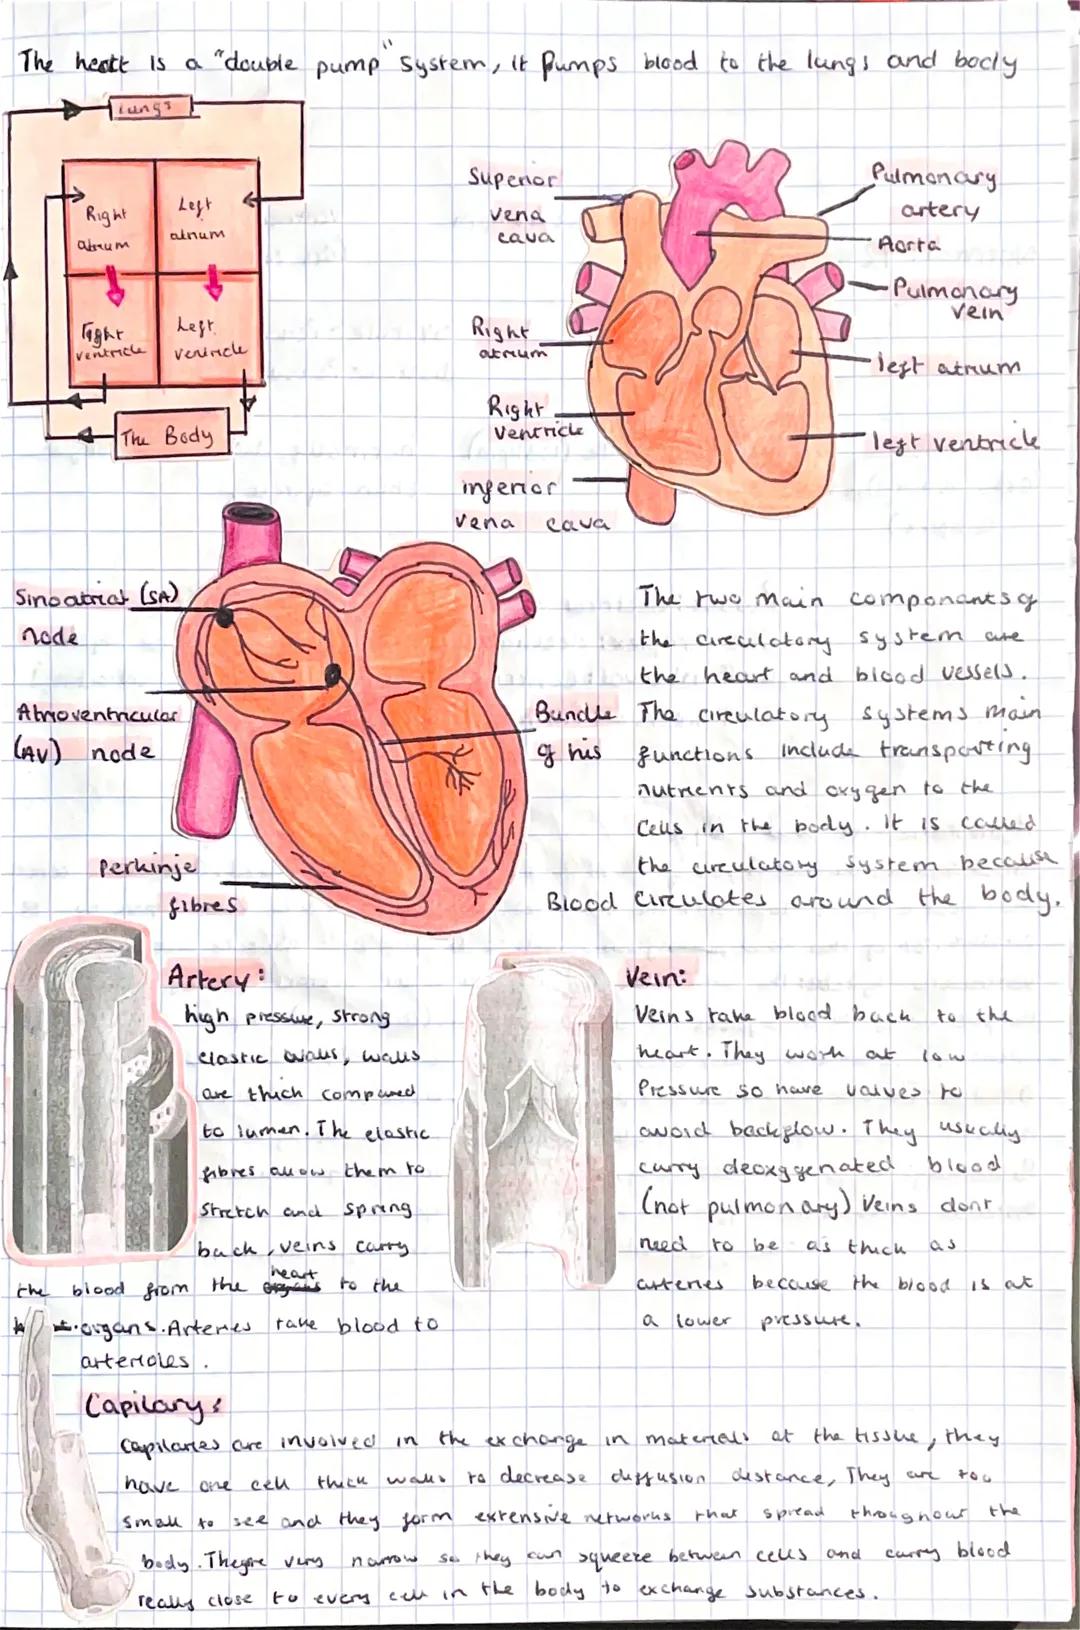 The heart is a "double pump" system, it pumps blood to the lungs and body
Lungs
Right atrium
Left atrium
Right ventricle
Left ventricle
The Body
Superior vena cava
Right atrium
Right ventricle
inferior vena cava
Pulmonary artery
Aorta
Pulmonary vein
left atrium
left ventricle
Sinoatrial (SA) node
Atrioventricular (AV) node
Bundle of his
Perkinje fibres
The two main components of
the circulatory system are
the heart and blood vessels.
The circulatory systems main
functions include transporting
nutrients and oxygen to the
cells in the body. It is called
the circulatory system because
Blood circulates around the body.
Artery:
high pressure, strong
elastic walls, walls
are thick compared
to lumen. The elastic
fibres allow them to
stretch and spring
back, veins carry
the blood from the heart to the
organs. Arteries take blood to
arterioles.
Vein:
Veins take blood back to the
heart. They work at low
Pressure so have valves to
avoid backflow. They usually
carry deoxygenated blood
(not pulmonary) Veins dont
need to be as thick as
arteries because the blood is at
a lower pressure.
Capilary:
Capilaries are involved in the exchange in materials at the tissue, they
have one cell thick walls to decrease diffusion distance, They are too
small to see and they form extensive networks that spread throughout the
body. Theyre very narrow so they can squeeze between cells and carry blood
really close to every cell in the body to exchange substances.